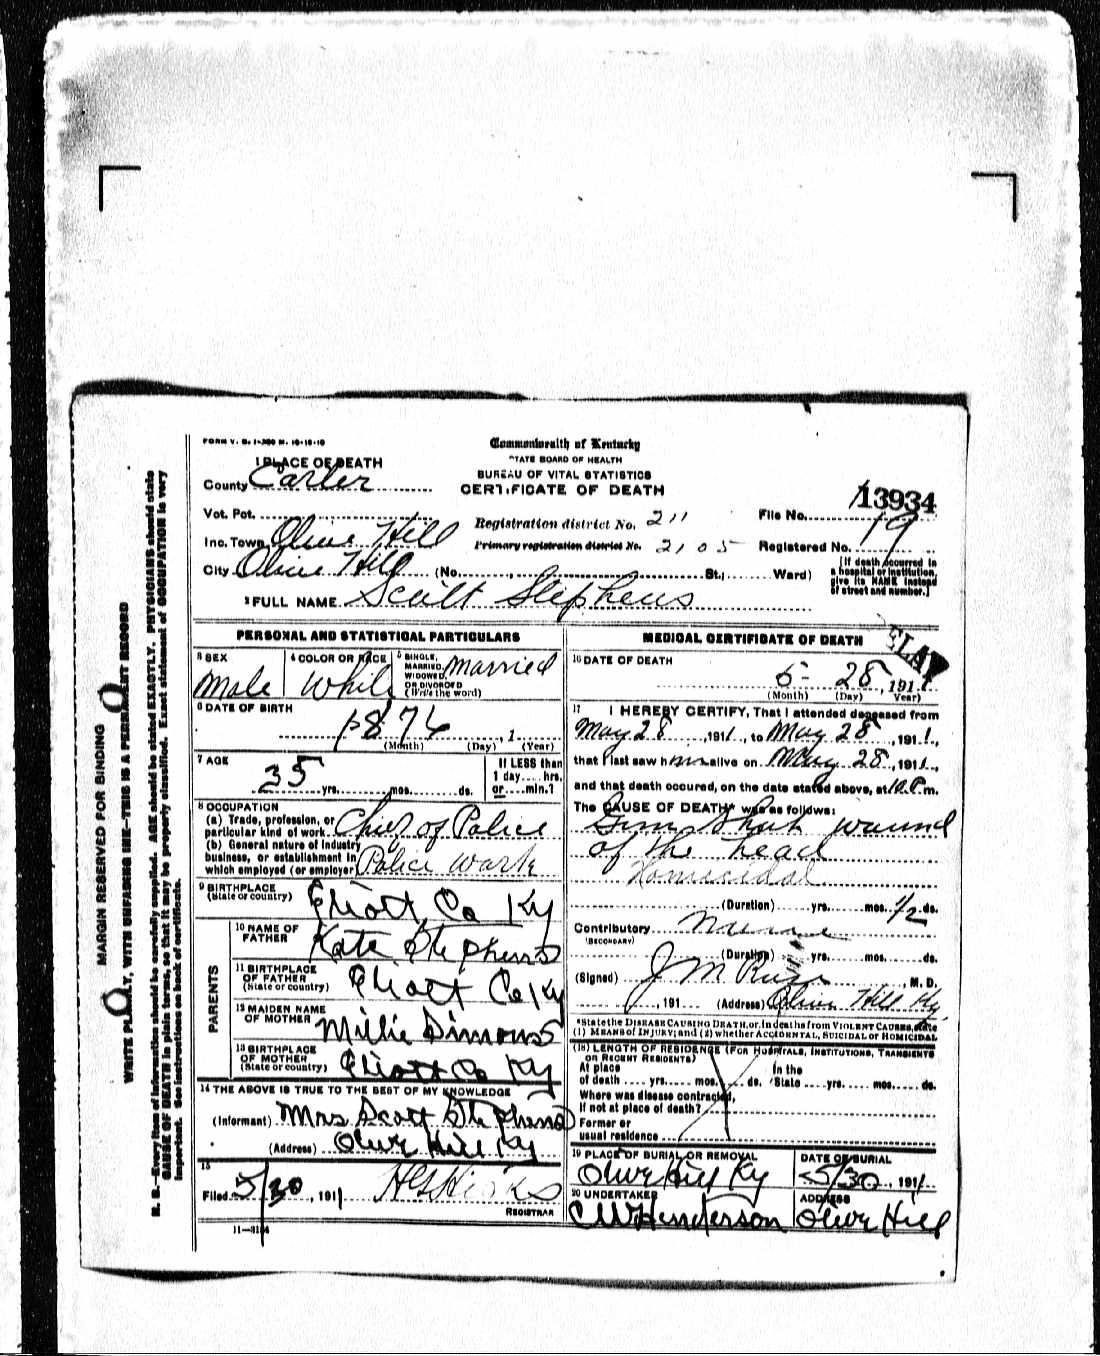 FORM V. S. 1-200 M. 10-10-10
Commonwealth of Kentucky
STATE BOARD OF HEALTH
BUREAU OF VITAL STATISTICS
CERTIFICATE OF DEATH
1 PLACE OF DEATH
County Carter
Vot. Pct.
Inc. Town Olive Hill
City Olive Hill (No. , St.; Ward)
Registration district No. 211
Primary registration district No. 2105
File No. 13934
Registered No. 19
[If death occurred in a hospital or institution, give its NAME instead of street and number.]
2 FULL NAME Scott Stephens
PERSONAL AND STATISTICAL PARTICULARS
3 SEX Male
4 COLOR OR RACE White
5 SINGLE, MARRIED, WIDOWED, OR DIVORCED (Write the word) Married
6 DATE OF BIRTH
1876
(Month) (Day) , 1 (Year)
7 AGE
35 yrs. mos. ds.
If LESS than 1 day.... hrs. or.... min.?
8 OCCUPATION
(a) Trade, profession, or particular kind of work Chief of Police
(b) General nature of industry business, or establishment in which employed (or employer Police Work
9 BIRTHPLACE (State or country) Eliott Co Ky
PARENTS
10 NAME OF FATHER Kate Stephens
11 BIRTHPLACE OF FATHER (State or country) Eliott Co Ky
12 MAIDEN NAME OF MOTHER Millie Simons
13 BIRTHPLACE OF MOTHER (State or country) Eliott Co Ky
14 THE ABOVE IS TRUE TO THE BEST OF MY KNOWLEDGE
(Informant) Mrs Scott Stephens
(Address) Olive Hill Ky
15
Filed 5/30, 1911
REGISTRAR
11-3184
MEDICAL CERTIFICATE OF DEATH
16 DATE OF DEATH
5 - 28, 1911
(Month) (Day) (Year)
17 I HEREBY CERTIFY, That I attended deceased from
May 28, 1911, to May 28, 1911,
that I last saw him alive on May 28, 1911,
and that death occured, on the date stated above, at 10 P. m.
The CAUSE OF DEATH* was as follows:
Gun Shot wound
of the head
Homicidal
(Duration) yrs. mos. 1/2 ds.
Contributory
(SECONDARY)
(Duration) yrs. mos. ds.
(Signed) J M , M. D.
, 191 (Address) Olive Hill Ky.
*State the DISEASE CAUSING DEATH, or, in deaths from VIOLENT CAUSES, state
(1) MEANS OF INJURY; and (2) whether ACCIDENTAL, SUICIDAL or HOMICIDAL
(18) LENGTH OF RESIDENCE (FOR HOSPITALS, INSTITUTIONS, TRANSIENTS OR RECENT RESIDENTS)
At place of death .... yrs. .... mos. .... ds. In the State .... yrs. .... mos. .... ds.
Where was disease contracted, if not at place of death?
Former or usual residence
19 PLACE OF BURIAL OR REMOVAL Olive Hill Ky
DATE OF BURIAL 5/30, 1911
20 UNDERTAKER CW Henderson
ADDRESS Olive Hill
MARGIN RESERVED FOR BINDING
WRITE PLAINLY, WITH UNFADING INK—THIS IS A PERMANENT RECORD
N. B.—Every item of information should be carefully supplied. AGE should be stated EXACTLY. PHYSICIANS should state
CAUSE OF DEATH in plain terms, so that it may be properly classified. Exact statement of OCCUPATION is very
important. See instructions on back of certificate.